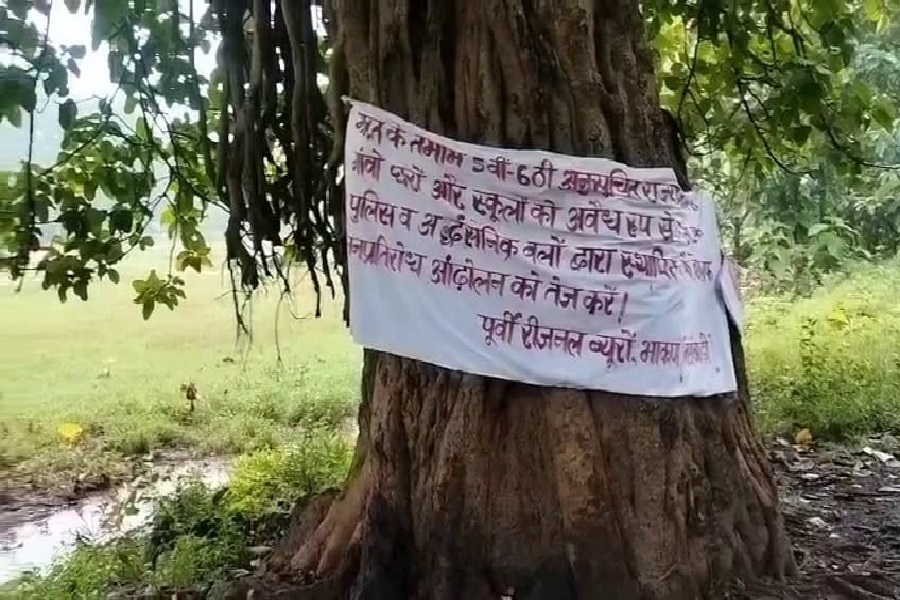 के तमाम 5वीं-6ठी अनुसूचित
घरों और स्कूलों को अवैध रूप से
पुलिस व अर्द्धसैनिक बलों द्वारा स्थापित
आंदोलन को तेज करें!
पूर्वी रीजनल ब्यूरो.